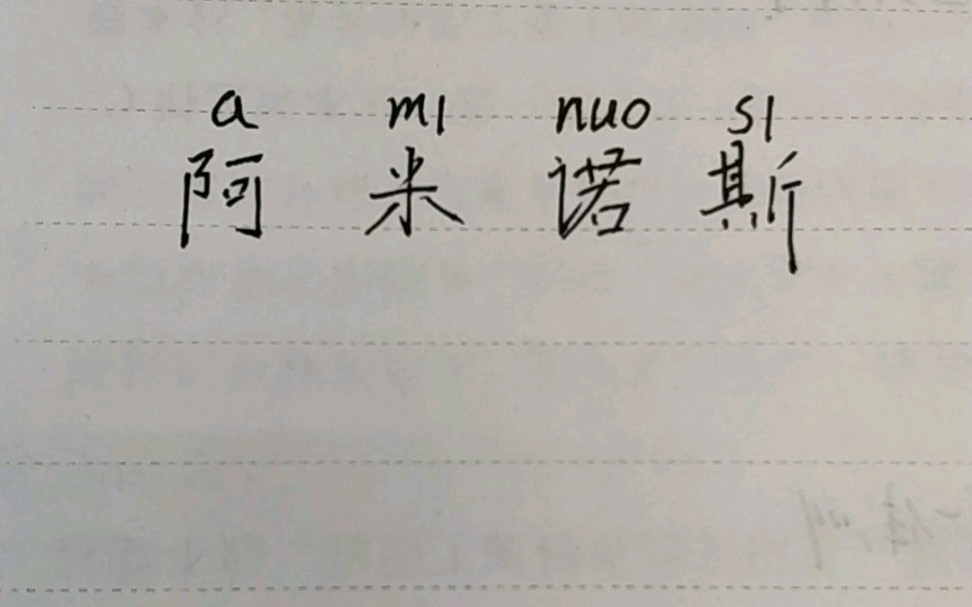 a mi nuo si
阿米诺斯